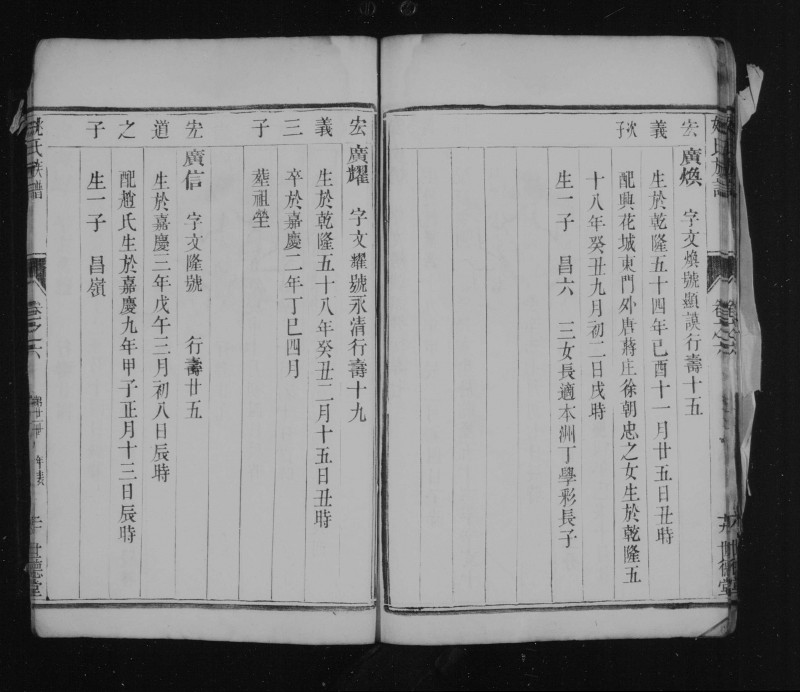 宏義次子
廣煥　字文煥號顯謨行壽十五
生於乾隆五十四年己酉十一月廿五日丑時
配興花城東門外唐蔣庄徐朝忠之女生於乾隆五
十八年癸丑九月初二日戌時
生一子　昌六　三女長適本洲丁學彩長子
宏義三子
廣耀　字文耀號永清行壽十九
生於乾隆五十八年癸丑二月十五日丑時
卒於嘉慶二年丁巳四月
塟祖塋
宏道之子
廣信　字文隆號　行壽廿五
生於嘉慶三年戊午三月初八日辰時
配趙氏生於嘉慶九年甲子正月十三日辰時
生一子　昌嶺
姚氏族譜
卷之六
世德堂